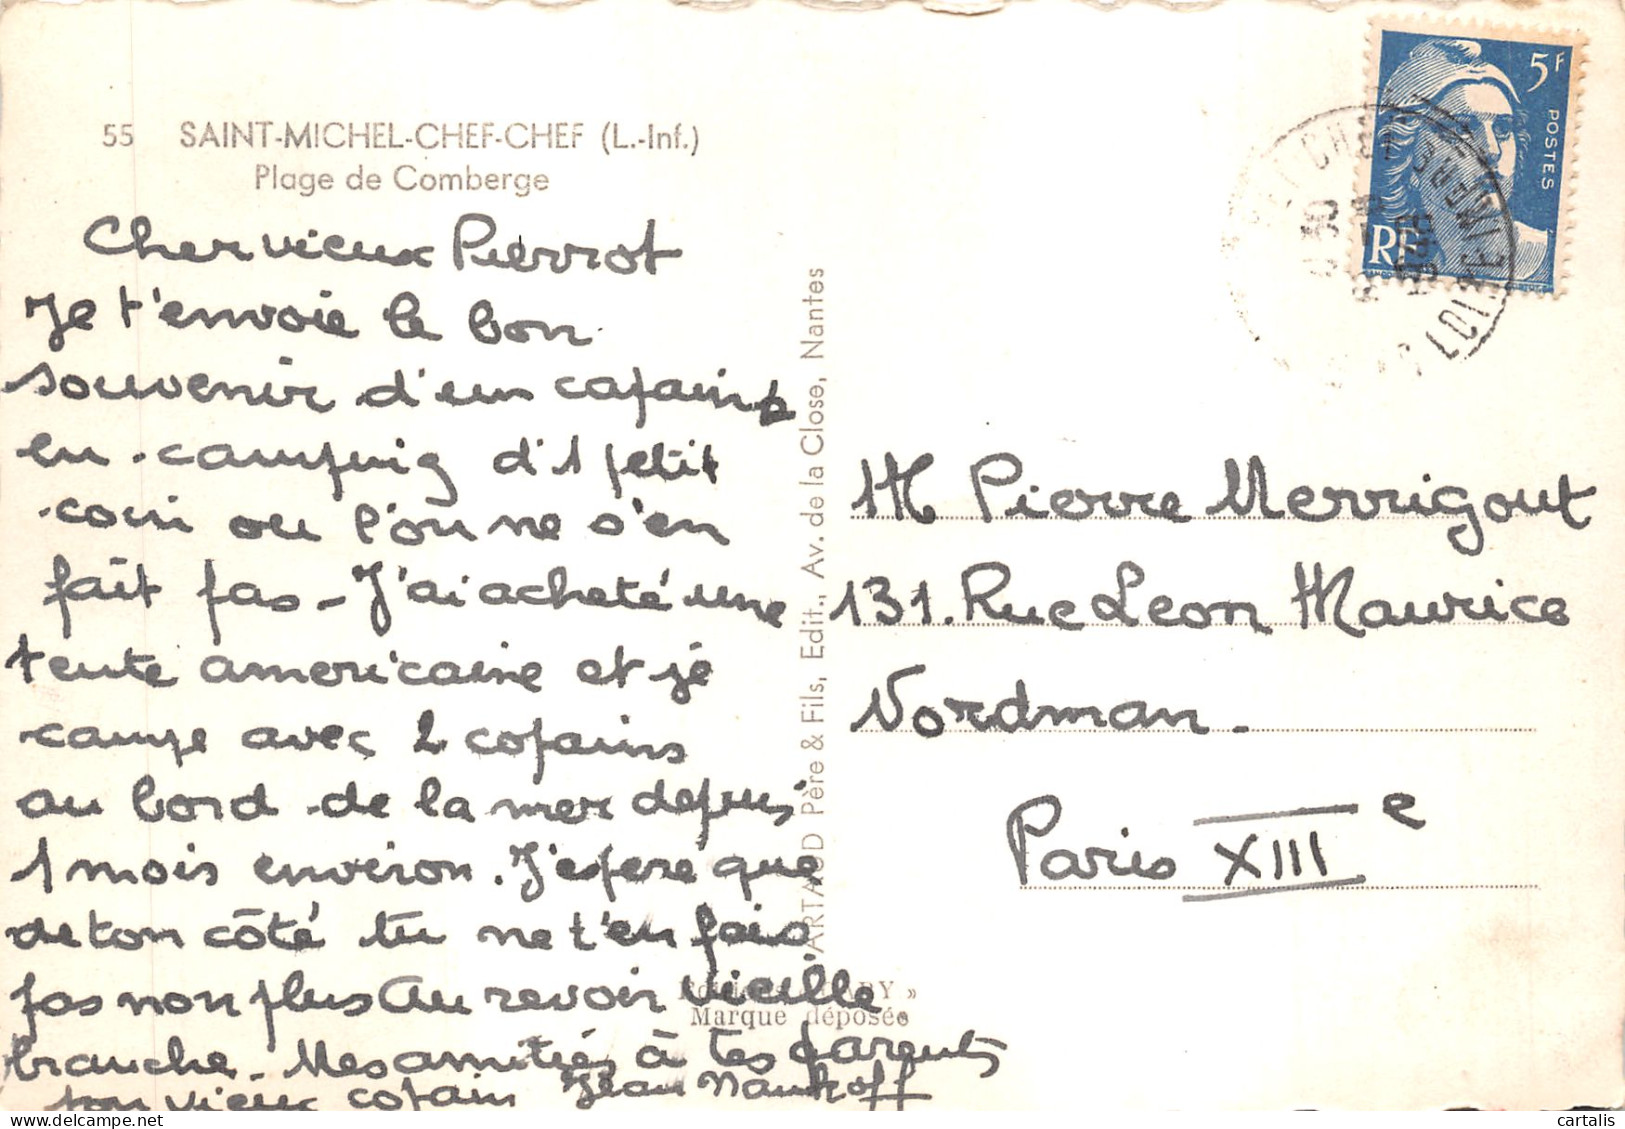 55 SAINT-MICHEL-CHEF-CHEF (L.-Inf.)
Plage de Comberge
Cher vieux Pierrot
Je t'envoie le bon
souvenir d'un copain
en camping d'1 petit
coin ou l'on ne s'en
fait pas - J'ai acheté une
tente americaine et je
campe avec 2 copains
au bord de la mer depuis
1 mois environ. J'espere que
de ton côté tu ne t'en fais
pas non plus Au revoir vieille
branche. Mes amitiés à tes parents
ton vieux copain Jean
ARTAUD Père & Fils, Edit., Av. de la Close, Nantes
Marque déposée
5F
POSTES
RF
LOIRE INFRE
M Pierre Merrigout
131. Rue Leon Maurice
Nordman.
Paris XIII e
cartalis